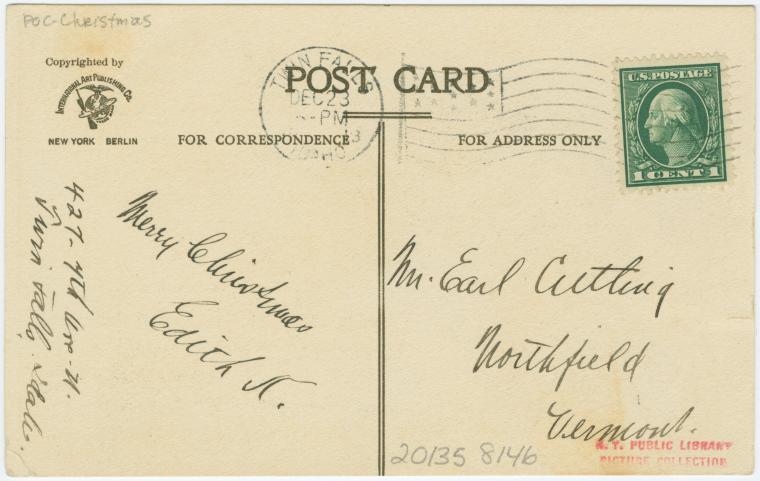 POC-Christmas
Copyrighted by
INTERNATIONAL ART PUBLISHING CO.
NEW YORK BERLIN
POST CARD
TWIN FALLS
DEC 23
PM
IDAHO
U.S. POSTAGE
1 CENT 1
FOR CORRESPONDENCE
FOR ADDRESS ONLY
427- 7th Ave- N.
Twin Falls. Idaho.
Merry Christmas
Edith N.
Mr. Earl Cutting
Northfield
Vermont.
20135 8146
N. Y. PUBLIC LIBRARY
PICTURE COLLECTION